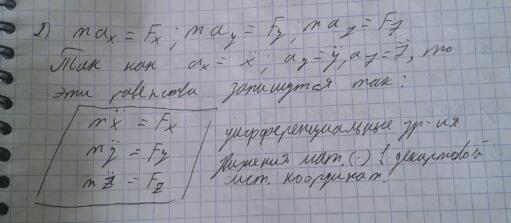 2) max = Fx ; may = Fy ; maz = Fz
Так как ax = ẍ ; ay = ÿ, az = z̈, то
эти равенства запишутся так:
mẍ = Fx
mÿ = Fy
mz̈ = Fz
дифференциальные ур-ия
движения мат. (·) в декартовой
сист. координат.